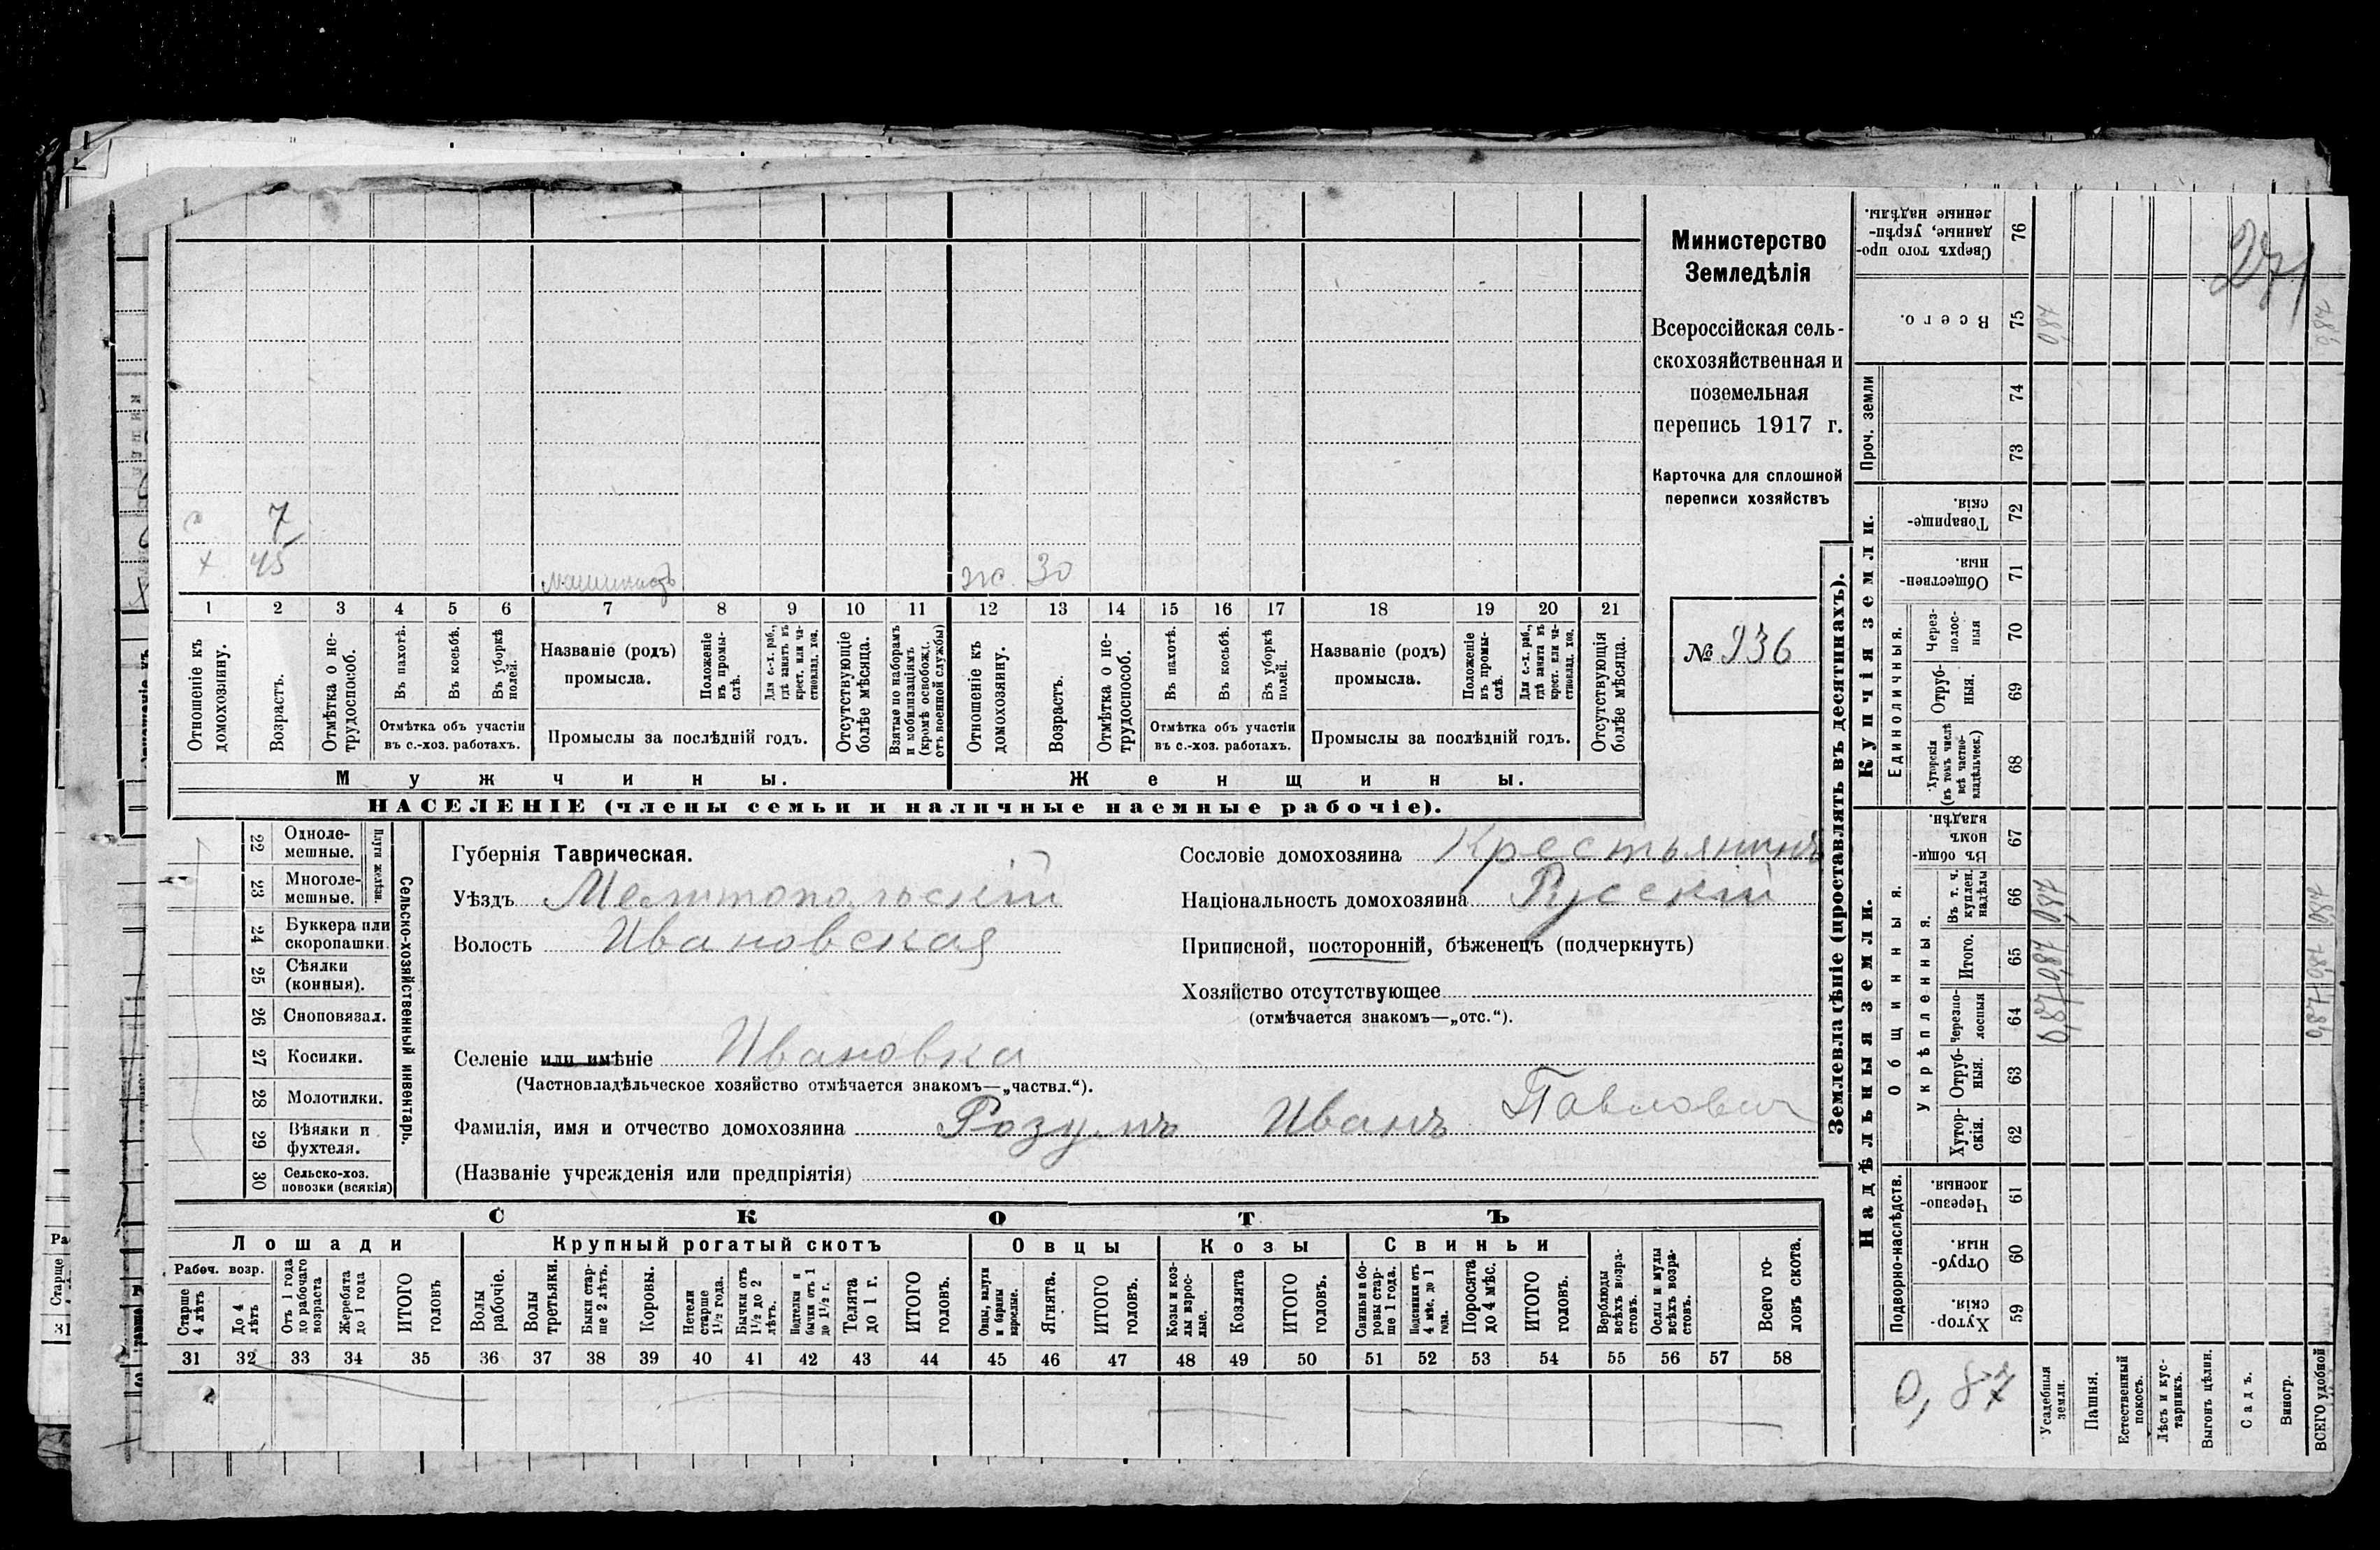 с 7
х 45 машинистъ ж. 30
1 2 3 4 5 6 7 8 9 10 11 12 13 14 15 16 17 18 19 20 21
Отношеніе къ домохозяину.
Возрастъ.
Отмѣтка о не-
трудоспособ.
Въ пахотѣ.
Въ косьбѣ.
Въ уборкѣ
полей.
Отмѣтка объ участіи
въ с.-хоз. работахъ.
Названіе (родъ)
промысла.
Положеніе
въ промы-
слѣ.
Для с.-х. раб.,
гдѣ занятъ въ
крест. или ча-
стновлад. хоз.
Промыслы за послѣдній годъ.
Отсутствующіе
болѣе мѣсяца.
Взятые по наборамъ
и мобилизаціямъ
(кромѣ освобожд.
отъ военной службы)
Отношеніе къ
домохозяину.
Возрастъ.
Отмѣтка о не-
трудоспособ.
Въ пахотѣ.
Въ косьбѣ.
Въ уборкѣ
полей.
Отмѣтка объ участіи
въ с.-хоз. работахъ.
Названіе (родъ)
промысла.
Положеніе
въ промы-
слѣ.
Для с.-х. раб.,
гдѣ занята въ
крест. или ча-
стновлад. хоз.
Промыслы за послѣдній годъ.
Отсутствующія
болѣе мѣсяца.
Мужчины. Женщины.
НАСЕЛЕНІЕ (члены семьи и наличные наемные рабочіе).
Министерство
Земледѣлія
Всероссійская сель-
скохозяйственная и
поземельная
перепись 1917 г.
Карточка для сплошной
переписи хозяйствъ
№ 936
22 Одноле-
мешные.
23 Многоле-
мешные.
Плуги желѣзн.
24 Буккера или
скоропашки.
25 Сѣялки
(конныя).
26 Сноповязал.
27 Косилки.
28 Молотилки.
29 Вѣялки и
фухтеля.
30 Сельско-хоз.
повозки (всякія)
Сельско-хозяйственный инвентарь.
Губернія Таврическая.
Уѣздъ Мелитопольскій
Волость Ивановская
Сословіе домохозяина Крестьянинъ
Національность домохозяина Русскій
Приписной, посторонній, бѣженецъ (подчеркнуть)
Хозяйство отсутствующее
(отмѣчается знакомъ—„отс.“).
Селеніе или имѣніе Ивановка
(Частновладѣльческое хозяйство отмѣчается знакомъ—„частвл.“).
Фамилія, имя и отчество домохозяина Розумъ Иванъ Павлович
(Названіе учрежденія или предпріятія)
СКОТЪ
Лошади Крупный рогатый скотъ Овцы Козы Свиньи
Рабоч. возр.
Старше
4 лѣтъ
До 4
лѣтъ
Отъ 1 года
до рабочаго
возраста
Жеребята
до 1 года
ИТОГО
головъ
Волы
рабочіе.
Волы
третьяки.
Быки стар-
ше 2 лѣтъ.
Коровы.
Нетели
старше
1½ года.
Бычки отъ
1½ до 2
лѣтъ.
Подтелки и
бычки отъ 1
до 1½ г.
Телята
до 1 г.
ИТОГО
головъ.
Овцы, валухи
и бараны
взрослые.
Ягнята.
ИТОГО
головъ.
Козы и коз-
лы взрос-
лые.
Козлята
ИТОГО
головъ.
Свиньи и бо-
ровы стар-
ше 1 года.
Подсвинки отъ
4 мѣс. до 1
года.
Поросята
до 4 мѣс.
ИТОГО
головъ.
Верблюды
всѣхъ возра-
стовъ.
Ослы и мулы
всѣхъ возра-
стовъ.
Всего го-
ловъ скота.
31 32 33 34 35 36 37 38 39 40 41 42 43 44 45 46 47 48 49 50 51 52 53 54 55 56 57 58
Землевладѣніе (проставлять въ десятинахъ).
Надѣльныя земли. Купчія земли.
Подворно-наслѣдств.
Общинныя.
Укрѣпленныя.
Единоличныя.
Проч. земли
Хутор-
скія. 59
Отруб-
ныя. 60
Черезпо-
лосныя. 61
Хутор-
скія. 62
Отруб-
ныя. 63
Черезпо-
лосныя 64
Итого. 65
Въ т. ч.
куплен.
надѣлы 66
Въ общи-
номъ
владѣн. 67
Хуторскія
(въ томъ числѣ
всѣ частно-
владѣльческ.) 68
Отруб-
ныя. 69
Через-
полос-
ныя 70
Обществен-
ныя. 71
Товарище-
скія. 72
73
74
Всего. 75
Сверхъ того про-
данные, укрѣп-
ленные надѣлы. 76
0,87
Усадебныя
земли. 0,87 0,87 0,87 0,87
Пашня.
Естественный
покосъ.
Лѣсъ и кус-
тарникъ.
Выгонъ цѣлин.
Садъ.
Виногр.
ВСЕГО удобной 0,87 0,87 0,87 0,87
271